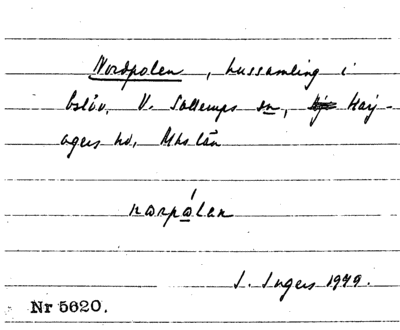 Nordpolen, hussamling i
Oslöv, V. Sallerups sn, Harj-
agers hd, Mhs län
norpålen
I. Ingers 1979.
Nr 5620.